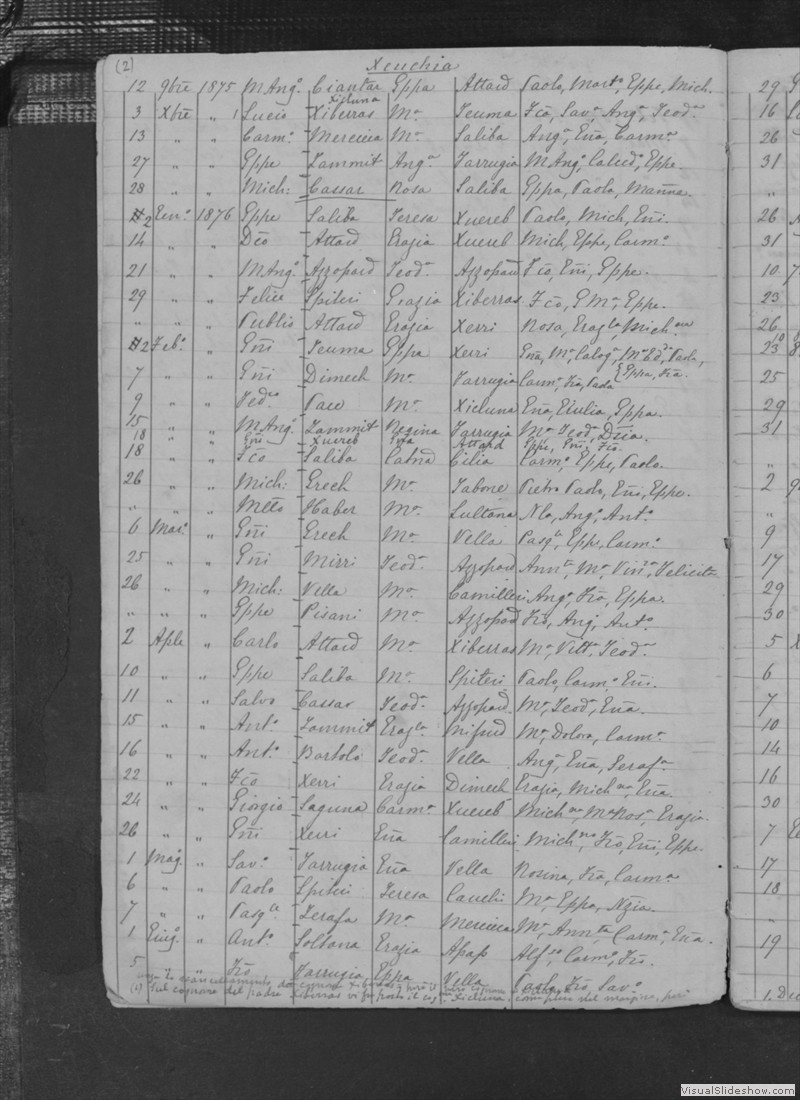 (2) Xeuchia
12 9bre 1875 M Ang.º Ciantar Gppa Attard Paolo, Mart.ª Gppe, Mich.
Xicluna
3 Xbre " 1 Lucio Xiberras M.ª Teuma Fcõ, Sav.ª Ang.ª, Teod.ª
13 " " Carm.º Mercieca M.ª Saliba Ang.ª, Eña, Carm.ª
27 " " Gppe Zammit Ang.ª Farrugia M Ang.º, Calced.ª, Gppe.
28 " " Mich: Cassar Rosa Saliba Gppa, Paolo, Marña.
2 Gen.º 1876 Gppe Saliba Teresa Xuereb Paolo, Mich, Gñi.
14 " " Dcõ Attard Grazia Xuereb Mich, Gppe, Carm.º
21 " " M Ang.º Azzopard Teod.ª Azzopard Fcõ, Gñi, Gppe.
29 " " Felice Spiteri Grazia Xiberras Fcõ, G M.ª, Gppe.
" " " Publio Attard Grazia Xerri Rosa, Graz.la, Mich.na
2 Feb.º " Gñi Teuma Gppa Xerri Eña, M.ª, Calog.ª, M.ª Ed.ª, Paolo,
7 " " Gñi Dimech M.ª Farrugia Carm.ª, Frã, Paola {Gppa, Frã.
9 " " Fed.co Pace M.ª Xicluna Eña, Giulia, Gppa.
15 " " M Ang.º Zammit Regina Farrugia M.ª Teod.ª, Dcã.
18 " " Gñi Xuereb Eña Attard Gppe, Gñi, Fcõ.
18 " " Fcõ Saliba Catnã Cilia Carm.º, Gppe, Paolo.
26 " " Mich: Grech M.ª Tabone Pietro Paolo, Gñi, Gppe.
" " " Mttõ Haber M.ª Sultana Nlo, Ang.º, Ant.º
6 Mar.º " Gñi Grech M.ª Vella Pasq.le, Gppe, Carm.º
25 " " Gñi Mizzi Teod.ª Azzopard Ann.ta, M.ª, Felicita
26 " " Mich: Vella M.ª Camilleri Ang.º, Frã, Gppa.
" " " Gppe Pisani M.ª Azzopard Frõ, Ang, Ant.º
2 Aple " Carlo Attard M.ª Xiberras M.ª, Vitt.ª, Teod.ª
10 " " Gppe Saliba M.ª Spiteri Paolo, Carm.º Gñi.
11 " " Salvo Cassar Teod.ª Azzopard. M.ª, Teod.ª, Eña.
15 " " Ant.º Zammit Graz.la Mifsud M.ª, Dolora, Carm.ª
16 " " Ant.º Bartolo Teod.ª Vella Ang.ª, Eña, Seraf.ª
22 " " Fcõ Xerri Grazia Dimech Grazia, Mich.na, Eña.
24 " " Giorgio Laguna Carm.ª Xuereb Mich.na M.ª Ros.ª, Grazia.
26 " " Gñi Xerri Eña Camilleri Mich.na, Frõ, Gñi, Gppe.
1 Mag.º " Sav.º Farrugia Eña Vella Rosina, Frã, Carm.ª
6 " " Paolo Spiteri Teresa Cauchi M.ª, Gppa, Nzia.
7 " " Pasq.le Zerafa M.ª Mercieca M.ª, Ann.ta, Carm.ª, Eña.
1 Giug.º " Ant.º Soltana Grazia Apap Alf.so, Carm.º, Frõ.
5 " " Frõ Farrugia Gppa Vella Paolo, Frõ, Sav.º
sul cognome del padre Xiberras vi fu posto il cog. Xicluna,
29
16
26
31
"
26
31
10
23
26
23
25
29
31
"
2
"
9
17
29
30
5
6
7
10
14
16
30
7
17
18
"
19
1. Dic
VisualSlideshow.com